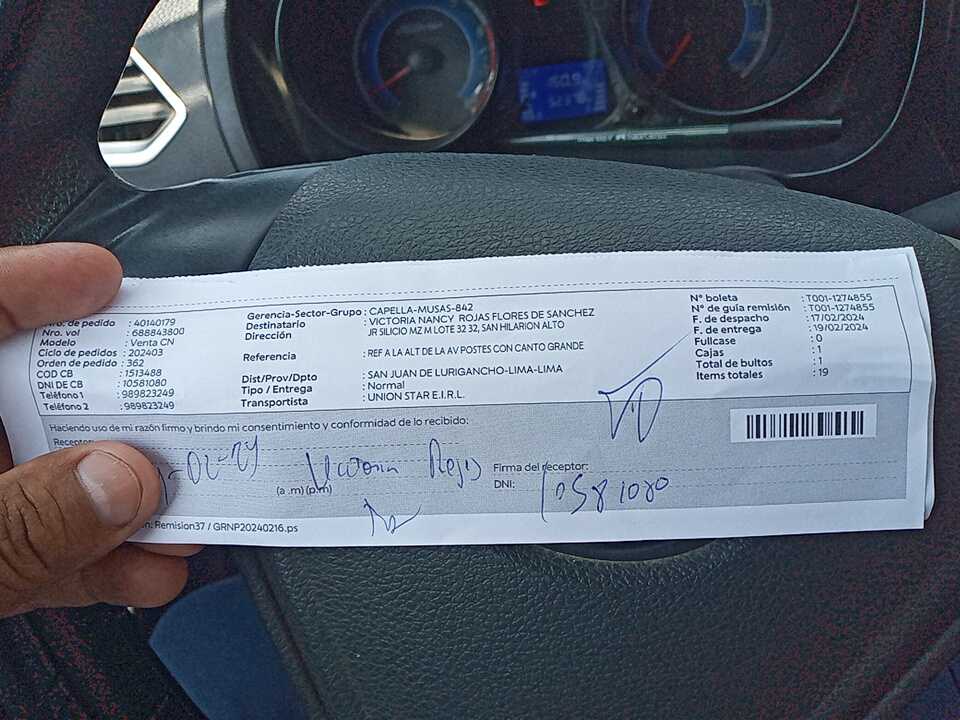 Nro. de pedido : 40140179
Nro. vol : 688843800
Modelo : Venta CN
Ciclo de pedidos : 202403
Orden de pedido : 362
COD CB : 1513488
DNI DE CB : 10581080
Teléfono 1 : 989823249
Teléfono 2 : 989823249
Gerencia-Sector-Grupo : CAPELLA-MUSAS-842
Destinatario : VICTORIA NANCY ROJAS FLORES DE SANCHEZ
Dirección : JR SILICIO MZ M LOTE 32 32, SAN HILARION ALTO
Referencia : REF A LA ALT DE LA AV POSTES CON CANTO GRANDE
Dist/Prov/Dpto : SAN JUAN DE LURIGANCHO-LIMA-LIMA
Tipo / Entrega : Normal
Transportista : UNION STAR E.I.R.L.
N° boleta : T001-1274855
N° de guía remisión : T001-1274855
F. de despacho : 17/02/2024
F. de entrega : 19/02/2024
Fullcase : 0
Cajas : 1
Total de bultos : 1
Items totales : 19
Haciendo uso de mi razón firmo y brindo mi consentimiento y conformidad de lo recibido:
Receptor:
(a .m) (p.m)
Firma del receptor:
DNI: 10581080
Remision37 / GRNP20240216.ps